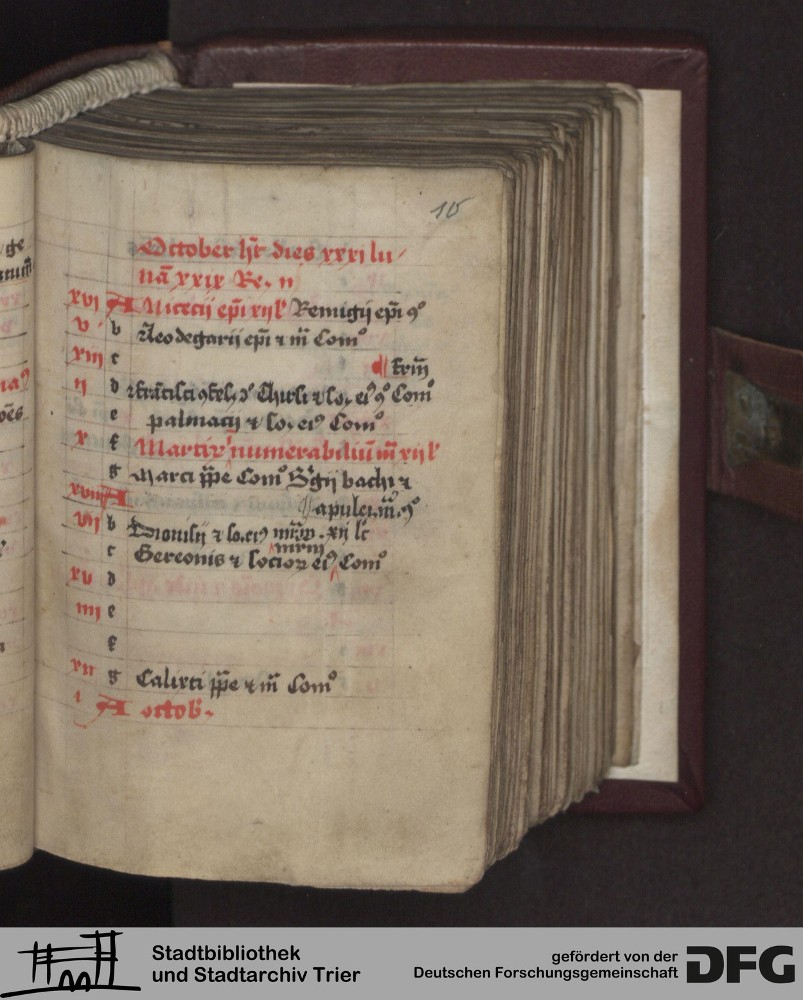 10
October ht dies xxxi lu
na xxix Re. n
xvi A Nicecij epi xij l Remigij epi 9°
v b Leodegarij epi 7 m Com°
xiii c
frm
ij d francisci Com°
e palmacij 7 so. ei9 Com°
x f Martir numerabiliu m xij l
g Marci ppe Com° Sgij bachi 7
xviii A apulei m 9°
vij b Dionisij 7 so. ei9 mrm. xij lc
mrm
c Gereonis 7 socior ei9 Com°
xv d
iiij e
f
xii g Calixti ppe 7 m Com°
i A octob.
Stadtbibliothek
und Stadtarchiv Trier
gefördert von der
Deutschen Forschungsgemeinschaft
DFG